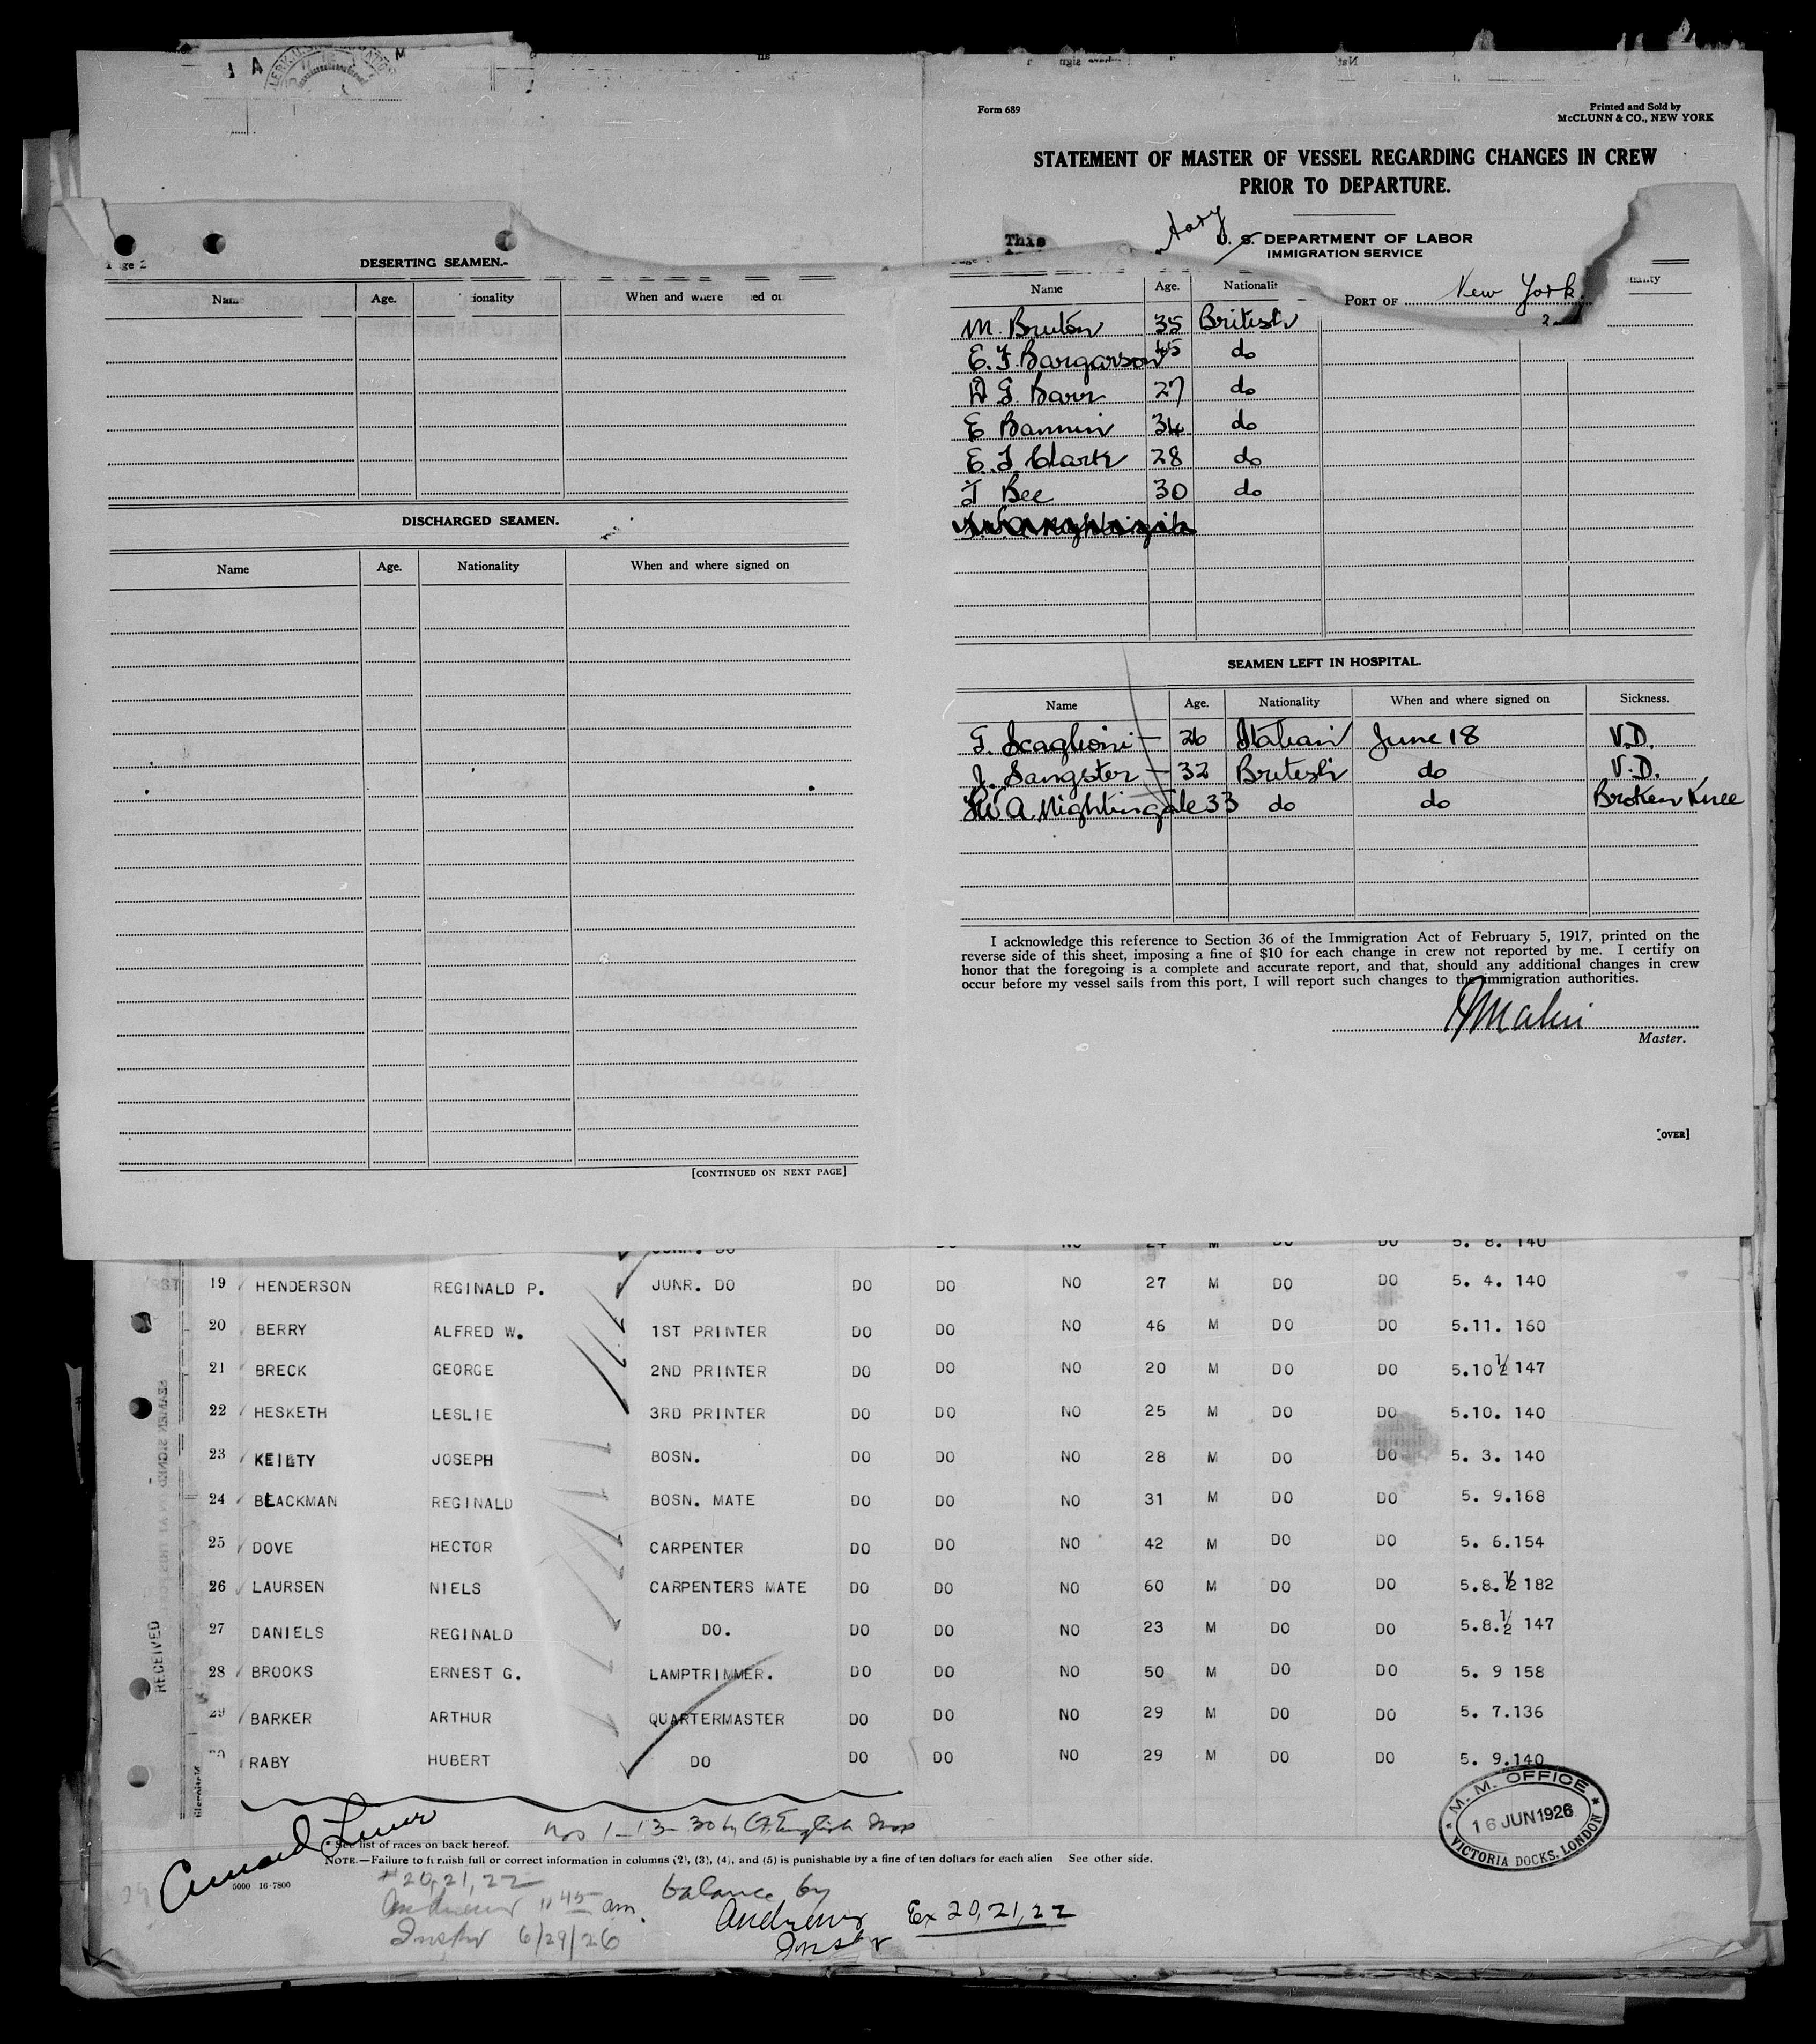 Form 689
Printed and Sold by
McCLUNN & CO., NEW YORK
STATEMENT OF MASTER OF VESSEL REGARDING CHANGES IN CREW
PRIOR TO DEPARTURE.
This
U. S. DEPARTMENT OF LABOR
IMMIGRATION SERVICE
PORT OF New York
DESERTING SEAMEN.
Name Age. ionality When and where ed on
DISCHARGED SEAMEN.
Name Age. Nationality When and where signed on
[CONTINUED ON NEXT PAGE]
Name Age. Nationalit
M. Bruton 35 British
E. J. Bargarson 45 do
27 do
E Bannin 34 do
Clark 28 do
Bee 30 do
SEAMEN LEFT IN HOSPITAL.
Name Age. Nationality When and where signed on Sickness.
G. Scaglioni 26 Italian June 18 V.D.
J. Sangster 32 British do V.D.
A. Nightingale 33 do do Broken Knee
I acknowledge this reference to Section 36 of the Immigration Act of February 5, 1917, printed on the
reverse side of this sheet, imposing a fine of $10 for each change in crew not reported by me. I certify on
honor that the foregoing is a complete and accurate report, and that, should any additional changes in crew
occur before my vessel sails from this port, I will report such changes to the immigration authorities.
Master.
[OVER]
JUNR. DO DO NO 24 M DO DO 5. 8. 140
19 HENDERSON REGINALD P. JUNR. DO DO DO NO 27 M DO DO 5. 4. 140
20 BERRY ALFRED W. 1ST PRINTER DO DO NO 46 M DO DO 5.11. 160
21 BRECK GEORGE 2ND PRINTER DO DO NO 20 M DO DO 5.10½ 147
22 HESKETH LESLIE 3RD PRINTER DO DO NO 25 M DO DO 5.10. 140
23 KEILTY JOSEPH BOSN. DO DO NO 28 M DO DO 5. 3. 140
24 BLACKMAN REGINALD BOSN. MATE DO DO NO 31 M DO DO 5. 9.168
25 DOVE HECTOR CARPENTER DO DO NO 42 M DO DO 5. 6.154
26 LAURSEN NIELS CARPENTERS MATE DO DO NO 60 M DO DO 5.8.½ 182
27 DANIELS REGINALD DO. DO DO NO 23 M DO DO 5.8.½ 147
28 BROOKS ERNEST G. LAMPTRIMMER. DO DO NO 50 M DO DO 5. 9 158
29 BARKER ARTHUR QUARTERMASTER DO DO NO 29 M DO DO 5. 7.136
RABY HUBERT DO DO DO NO 29 M DO DO 5. 9.140
RECEIVED
Cunard Line
* See list of races on back hereof.
NOTE.—Failure to furnish full or correct information in columns (2), (3), (4), and (5) is punishable by a fine of ten dollars for each alien See other side.
5000 16-7800
# 20, 21, 22
Andrews 11 45 am.
6/29/26
balance by
Andrews Ex 20, 21, 22
M. M. OFFICE
16 JUN 1926
VICTORIA DOCKS, LONDON